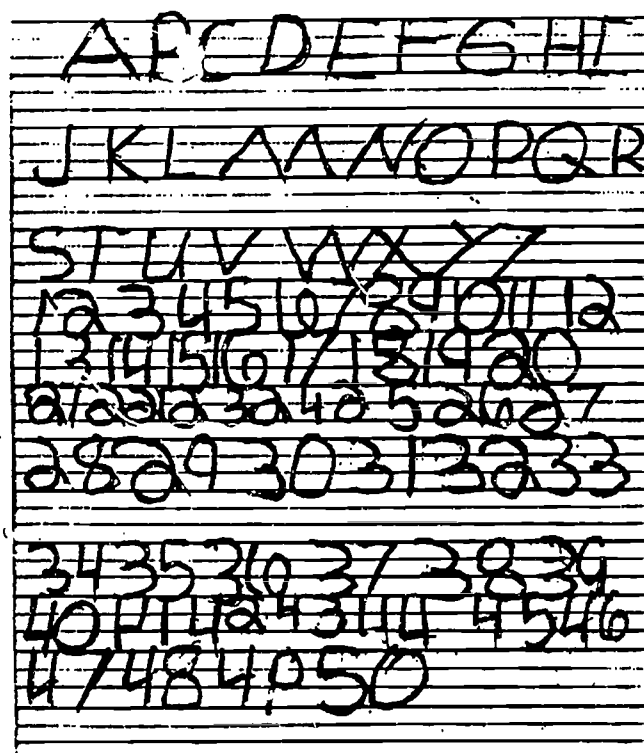 A B C D E F G H I
J K L M N O P Q R
S T U V W X Y Z
1 2 3 4 5 6 7 8 9 10 11 12
13 14 15 16 17 18 19 20
21 22 23 24 25 26 27
28 29 30 31 32 33
34 35 36 37 38 39
40 41 42 43 44 45 46
47 48 49 50